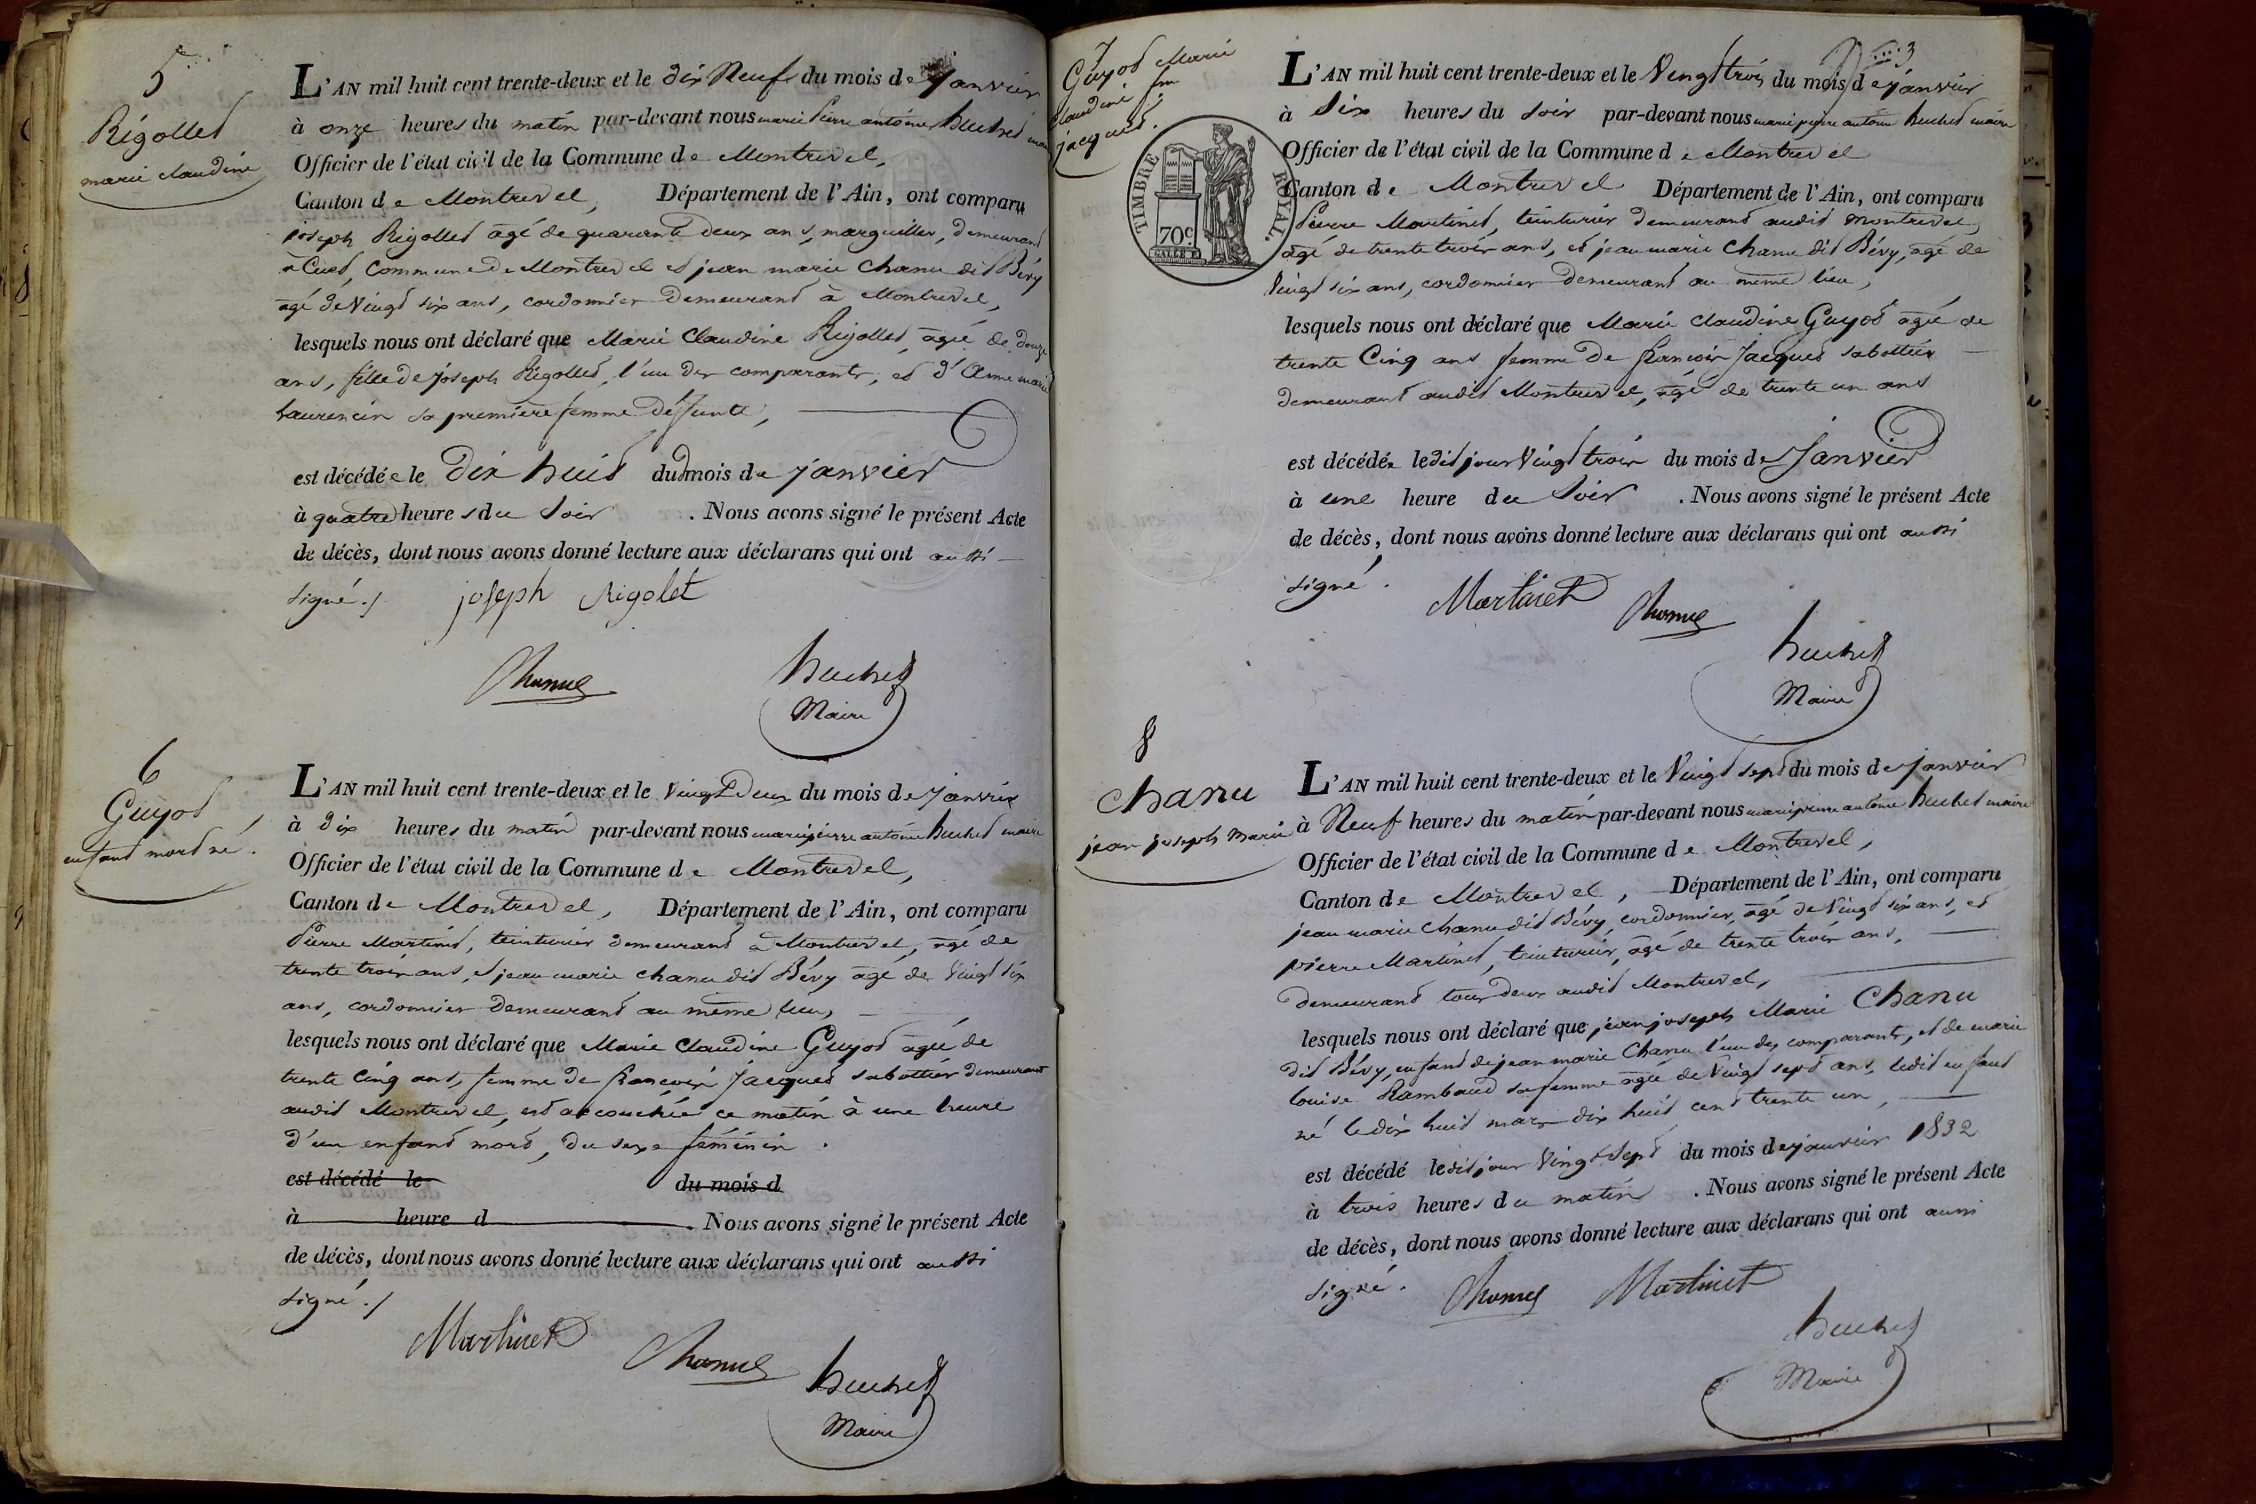 5
Rigollet
marie claudine
L'AN mil huit cent trente-deux et le dix Neuf du mois de janvier
à onze heures du matin par-devant nous marie Pierre antoine huchet maire
Officier de l'état civil de la Commune de Montrevel,
Canton de Montrevel, Département de l'Ain, ont comparu
joseph Rigollet âgé de quarante deux ans, marguiller, demeurant
à Cuet, commune de Montrevel et jean marie chanu dit Bévy
âgé de Vingt six ans, cordonnier demeurant à Montrevel,
lesquels nous ont déclaré que Marie Claudine Rigollet, agée de douze
ans, fille de joseph Rigollet, l'un des comparants, et d'Anne marie
Laurencin sa première femme deffunte,
est décédée le Dix huit du mois de janvier
à quatre heures du Soir . Nous avons signé le présent Acte
de décès, dont nous avons donné lecture aux déclarans qui ont aussi
signé ./.
joseph Rigolet
Chanu
huchet
Maire
6
Guyot,
enfant mort né.
L'AN mil huit cent trente-deux et le Vingt Deux du mois de janvier
à Dix heures du matin par-devant nous marie pierre antoine huchet maire
Officier de l'état civil de la Commune de Montrevel,
Canton de Montrevel, Département de l'Ain, ont comparu
Pierre Martinet, teinturier demeurant à Montrevel, agé de
trente trois ans, et jean marie chanu dit Bévy âgé de Vingt six
ans, cordonnier demeurant au même lieu,
lesquels nous ont déclaré que Marie Claudine Guyot agée de
trente Cinq ans, femme de francois Jacquet sabottier demeurant
audit Montrevel, est accouchée ce matin à une heure
d'un enfant mort, du sexe féminin .
est décédé le du mois d
à heure d . Nous avons signé le présent Acte
de décès, dont nous avons donné lecture aux déclarans qui ont aussi
signé ./
Martinet
Chanu
huchet
Maire
3
7
Guyot Marie
claudine fme
jacquet.
TIMBRE ROYAL.
70c
L'AN mil huit cent trente-deux et le Vingt trois du mois de janvier
à Six heures du soir par-devant nous marie pierre antoine huchet maire
Officier de l'état civil de la Commune de Montrevel
Canton de Montrevel Département de l'Ain, ont comparu
Pierre Martinet, teinturier demeurant audit Montrevel,
âgé de trente trois ans, et jean marie chanu dit Bévy, âgé de
Vingt six ans, cordonnier demeurant au même lieu,
lesquels nous ont déclaré que Marie claudine Guyot agée de
trente Cinq ans femme de francois Jacquet sabottier
demeurant audit Montrevel, agé de trente un ans
est décédée ledit jour Vingt trois du mois de Janvier
à une heure du Soir . Nous avons signé le présent Acte
de décès, dont nous avons donné lecture aux déclarans qui ont aussi
signé .
Martinet
Chanu
huchet
Maire
8
Chanu
jean joseph Marie
L'AN mil huit cent trente-deux et le Vingt sept du mois de janvier
à Neuf heures du matin par-devant nous marie pierre antoine huchet maire
Officier de l'état civil de la Commune de Montrevel,
Canton de Montrevel, Département de l'Ain, ont comparu
jean marie chanu dit Bévy, cordonnier, âgé de Vingt six ans, et
pierre Martinet, teinturier, âgé de trente trois ans,
demeurant tous deux audit Montrevel,
lesquels nous ont déclaré que jean joseph Marie Chanu
dit Bévy, enfant de jean marie Chanu l'un des comparants, et de marie
louise Rambaud sa femme agée de Vingt sept ans, ledit enfant
né le dix huit mars dix huit cent trente un,
est décédé ledit jour Vingt Sept du mois de janvier 1832
à trois heures du matin . Nous avons signé le présent Acte
de décès, dont nous avons donné lecture aux déclarans qui ont aussi
signé .
Chanu
Martinet
huchet
Maire